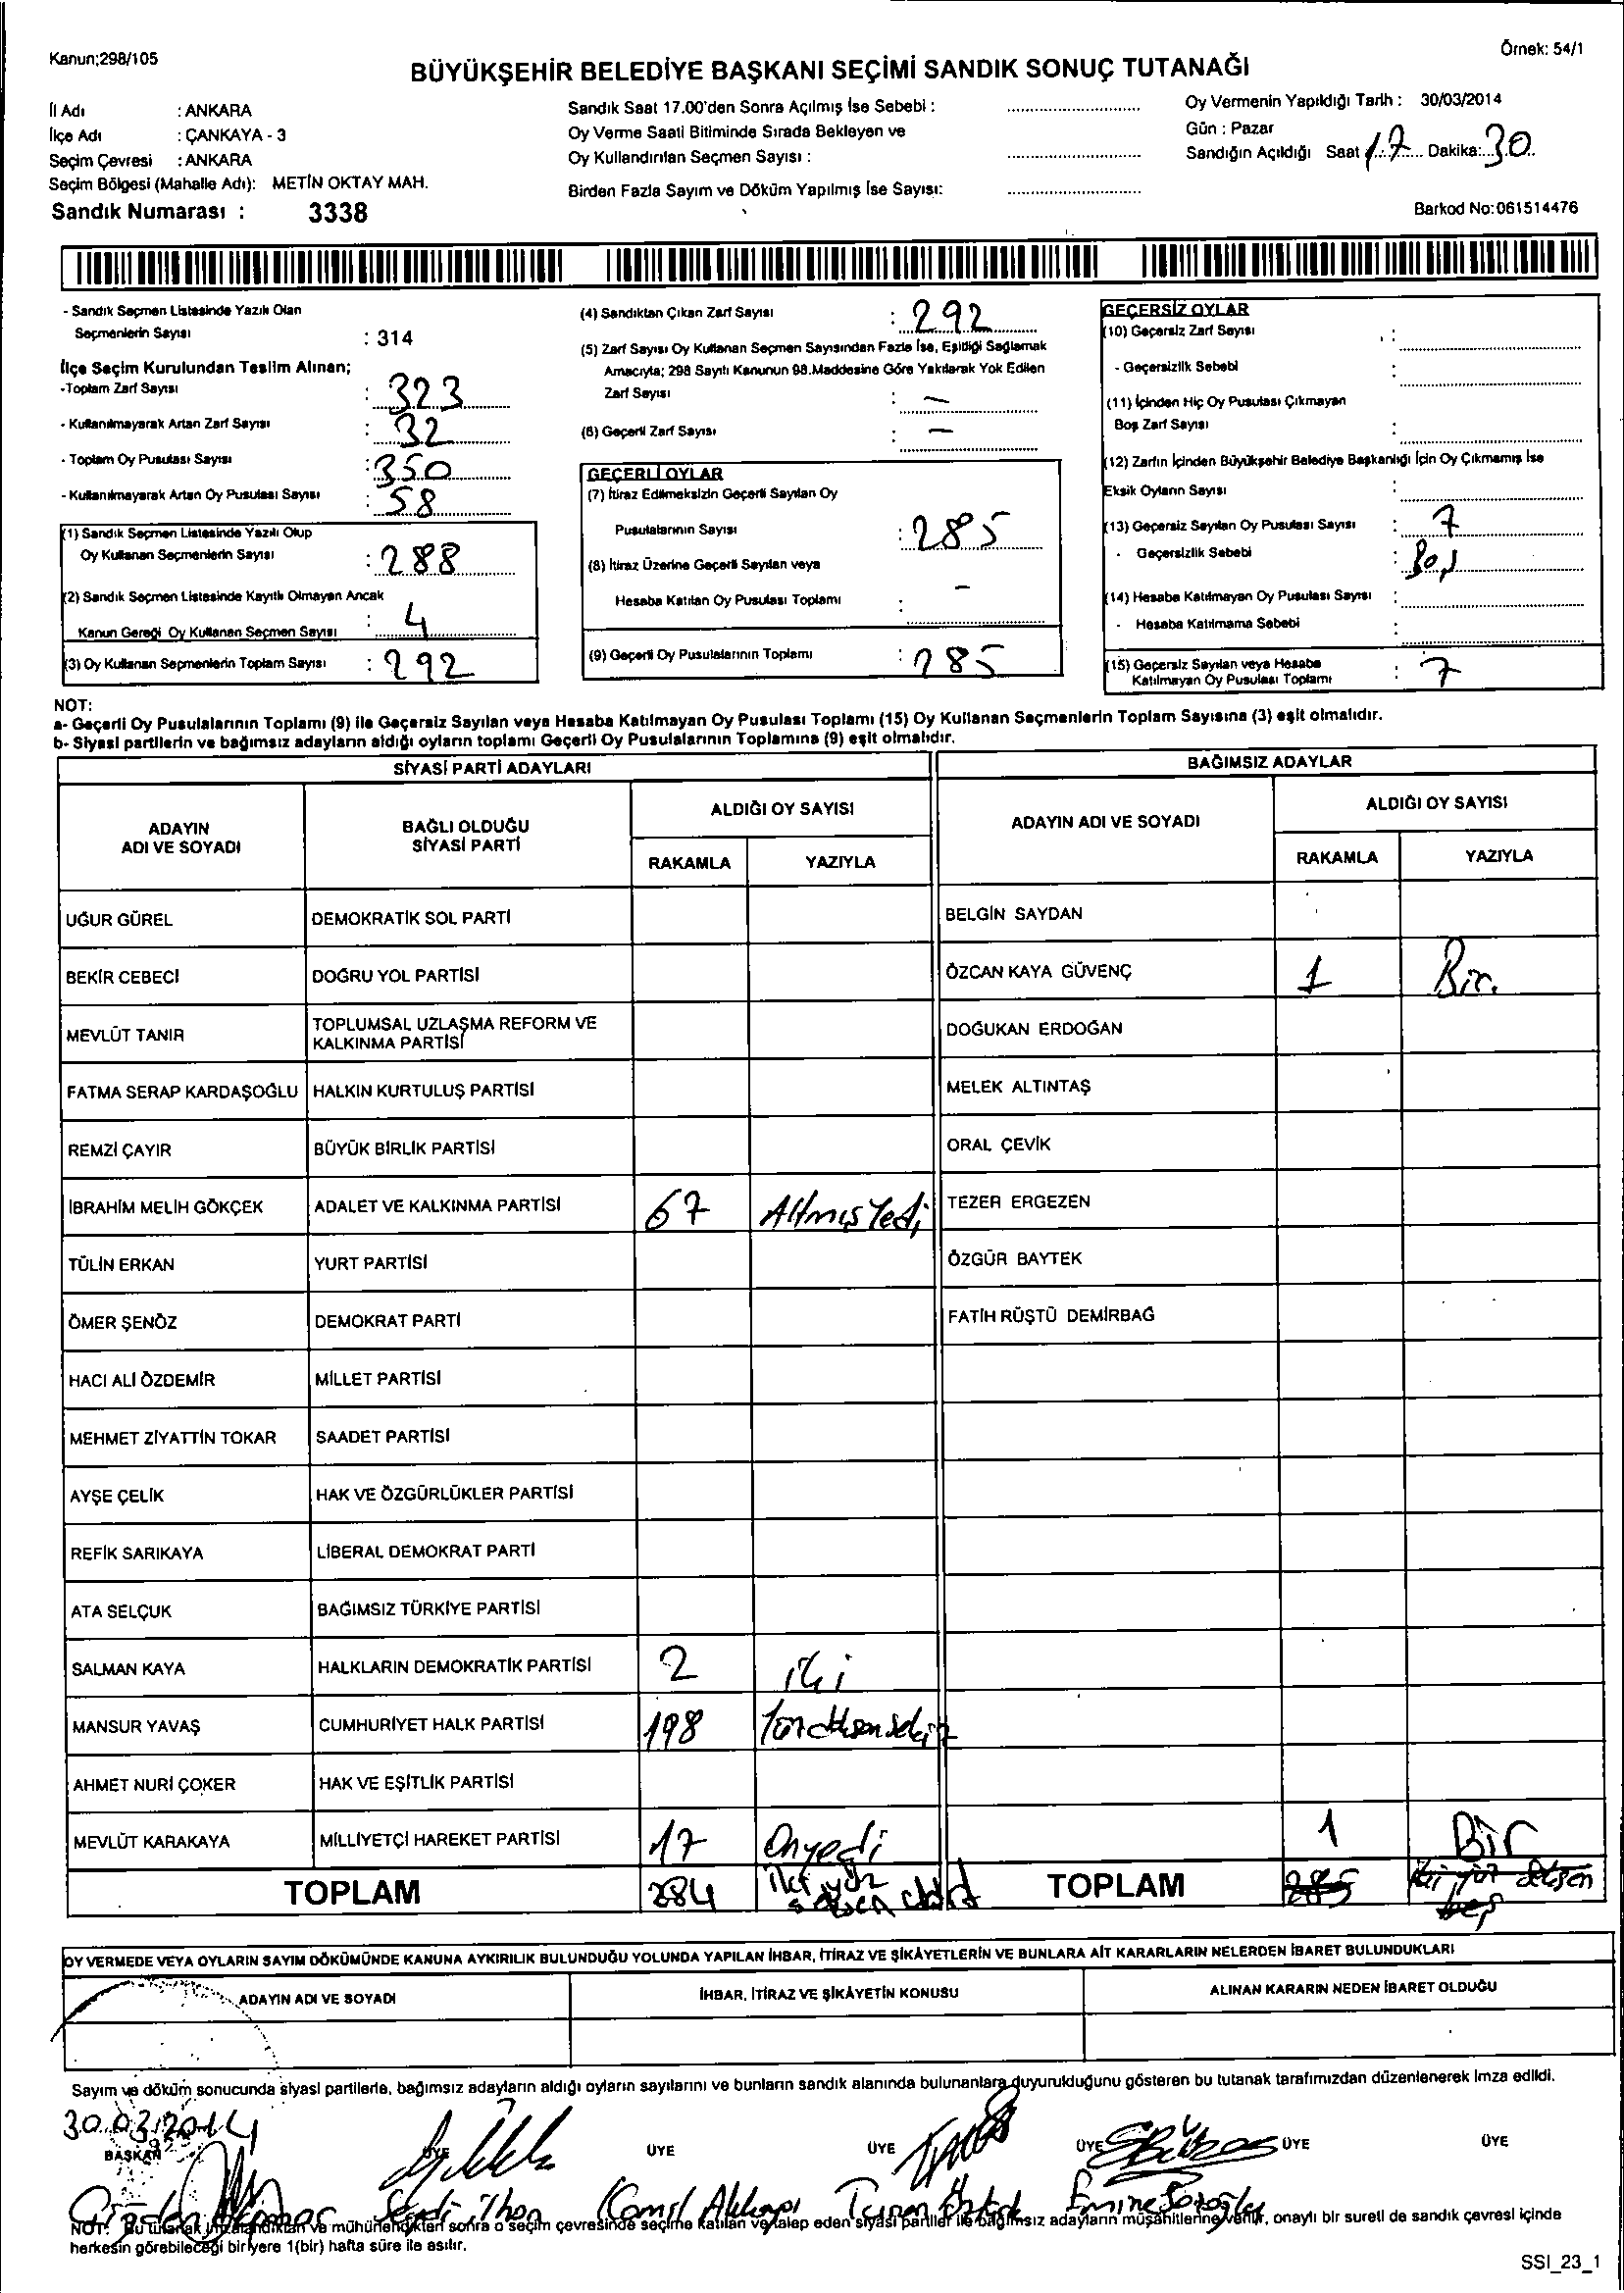 Kanun;298/105
Örnek: 54/1
BÜYÜKŞEHİR BELEDİYE BAŞKANI SEÇİMİ SANDIK SONUÇ TUTANAĞI
İl Adı : ANKARA
İlçe Adı : ÇANKAYA - 3
Seçim Çevresi : ANKARA
Seçim Bölgesi (Mahalle Adı): METİN OKTAY MAH.
Sandık Numarası : 3338
Sandık Saat 17.00'den Sonra Açılmış İse Sebebi :
Oy Verme Saati Bitiminde Sırada Bekleyen ve
Oy Kullandırılan Seçmen Sayısı :
Birden Fazla Sayım ve Döküm Yapılmış İse Sayısı:
Oy Vermenin Yapıldığı Tarih : 30/03/2014
Gün : Pazar
Sandığın Açıldığı Saat 17 Dakika: 30
Barkod No:061514476
- Sandık Seçmen Listesinde Yazılı Olan
Seçmenlerin Sayısı : 314
İlçe Seçim Kurulundan Teslim Alınan;
-Toplam Zarf Sayısı : 323
- Kullanılmayarak Artan Zarf Sayısı : 32
- Toplam Oy Pusulası Sayısı : 350
- Kullanılmayarak Artan Oy Pusulası Sayısı : 58
(1) Sandık Seçmen Listesinde Yazılı Olup
Oy Kullanan Seçmenlerin Sayısı : 288
(2) Sandık Seçmen Listesinde Kayıtlı Olmayan Ancak
Kanun Gereği Oy Kullanan Seçmen Sayısı : 4
(3) Oy Kullanan Seçmenlerin Toplam Sayısı : 292
(4) Sandıktan Çıkan Zarf Sayısı : 292
(5) Zarf Sayısı Oy Kullanan Seçmen Sayısından Fazla İse, Eşitliği Sağlamak
Amacıyla; 298 Sayılı Kanunun 98.Maddesine Göre Yakılarak Yok Edilen
Zarf Sayısı : -
(6) Geçerli Zarf Sayısı : -
GEÇERLİ OYLAR
(7) İtiraz Edilmeksizin Geçerli Sayılan Oy
Pusulalarının Sayısı : 285
(8) İtiraz Üzerine Geçerli Sayılan veya
Hesaba Katılan Oy Pusulası Toplamı : -
(9) Geçerli Oy Pusulalarının Toplamı : 285
GEÇERSİZ OYLAR
(10) Geçersiz Zarf Sayısı :
- Geçersizlik Sebebi :
(11) İçinden Hiç Oy Pusulası Çıkmayan
Boş Zarf Sayısı :
(12) Zarfın İçinden Büyükşehir Belediye Başkanlığı İçin Oy Çıkmamış İse
Eksik Oyların Sayısı :
(13) Geçersiz Sayılan Oy Pusulası Sayısı : 7
- Geçersizlik Sebebi : Boş
(14) Hesaba Katılmayan Oy Pusulası Sayısı :
- Hesaba Katılmama Sebebi :
(15) Geçersiz Sayılan veya Hesaba
Katılmayan Oy Pusulası Toplamı : 7
NOT:
a- Geçerli Oy Pusulalarının Toplamı (9) ile Geçersiz Sayılan veya Hesaba Katılmayan Oy Pusulası Toplamı (15) Oy Kullanan Seçmenlerin Toplam Sayısına (3) eşit olmalıdır.
b- Siyasi partilerin ve bağımsız adayların aldığı oyların toplamı Geçerli Oy Pusulalarının Toplamına (9) eşit olmalıdır.
SİYASİ PARTİ ADAYLARI
BAĞIMSIZ ADAYLAR
ADAYIN
ADI VE SOYADI
BAĞLI OLDUĞU
SİYASİ PARTİ
ALDIĞI OY SAYISI
RAKAMLA YAZIYLA
ADAYIN ADI VE SOYADI
ALDIĞI OY SAYISI
RAKAMLA YAZIYLA
UĞUR GÜREL DEMOKRATİK SOL PARTİ BELGİN SAYDAN
BEKİR CEBECİ DOĞRU YOL PARTİSİ ÖZCAN KAYA GÜVENÇ 1 Bir.
MEVLÜT TANIR TOPLUMSAL UZLAŞMA REFORM VE
KALKINMA PARTİSİ DOĞUKAN ERDOĞAN
FATMA SERAP KARDAŞOĞLU HALKIN KURTULUŞ PARTİSİ MELEK ALTINTAŞ
REMZİ ÇAYIR BÜYÜK BİRLİK PARTİSİ ORAL ÇEVİK
İBRAHİM MELİH GÖKÇEK ADALET VE KALKINMA PARTİSİ 67 Altmış Yedi TEZER ERGEZEN
TÜLİN ERKAN YURT PARTİSİ ÖZGÜR BAYTEK
ÖMER ŞENÖZ DEMOKRAT PARTİ FATİH RÜŞTÜ DEMİRBAĞ
HACI ALİ ÖZDEMİR MİLLET PARTİSİ
MEHMET ZİYATTİN TOKAR SAADET PARTİSİ
AYŞE ÇELİK HAK VE ÖZGÜRLÜKLER PARTİSİ
REFİK SARIKAYA LİBERAL DEMOKRAT PARTİ
ATA SELÇUK BAĞIMSIZ TÜRKİYE PARTİSİ
SALMAN KAYA HALKLARIN DEMOKRATİK PARTİSİ 2 iki
MANSUR YAVAŞ CUMHURİYET HALK PARTİSİ 198
AHMET NURİ ÇOKER HAK VE EŞİTLİK PARTİSİ
MEVLÜT KARAKAYA MİLLİYETÇİ HAREKET PARTİSİ 17 Onyedi 1 Bir
TOPLAM 284 iki yüz
seksen dört
TOPLAM 285 iki yüz seksen
beş
OY VERMEDE VEYA OYLARIN SAYIM DÖKÜMÜNDE KANUNA AYKIRILIK BULUNDUĞU YOLUNDA YAPILAN İHBAR, İTİRAZ VE ŞİKÂYETLERİN VE BUNLARA AİT KARARLARIN NELERDEN İBARET BULUNDUKLARI
ADAYIN ADI VE SOYADI İHBAR, İTİRAZ VE ŞİKÂYETİN KONUSU ALINAN KARARIN NEDEN İBARET OLDUĞU
Sayım ve döküm sonucunda siyasi partilerle, bağımsız adayların aldığı oyların sayılarını ve bunların sandık alanında bulunanlara duyurulduğunu gösteren bu tutanak tarafımızdan düzenlenerek imza edildi.
30.03.2014
BAŞKAN ÜYE ÜYE ÜYE ÜYE ÜYE ÜYE
NOT: Bu tutanak imzalandıktan ve mühürlendikten sonra o seçim çevresinde seçime katılan ve talep eden siyasi partiler ile bağımsız adayların müşahitlerine verilir, onaylı bir sureti de sandık çevresi içinde
herkesin görebileceği bir yere 1(bir) hafta süre ile asılır.
SSI_23_1